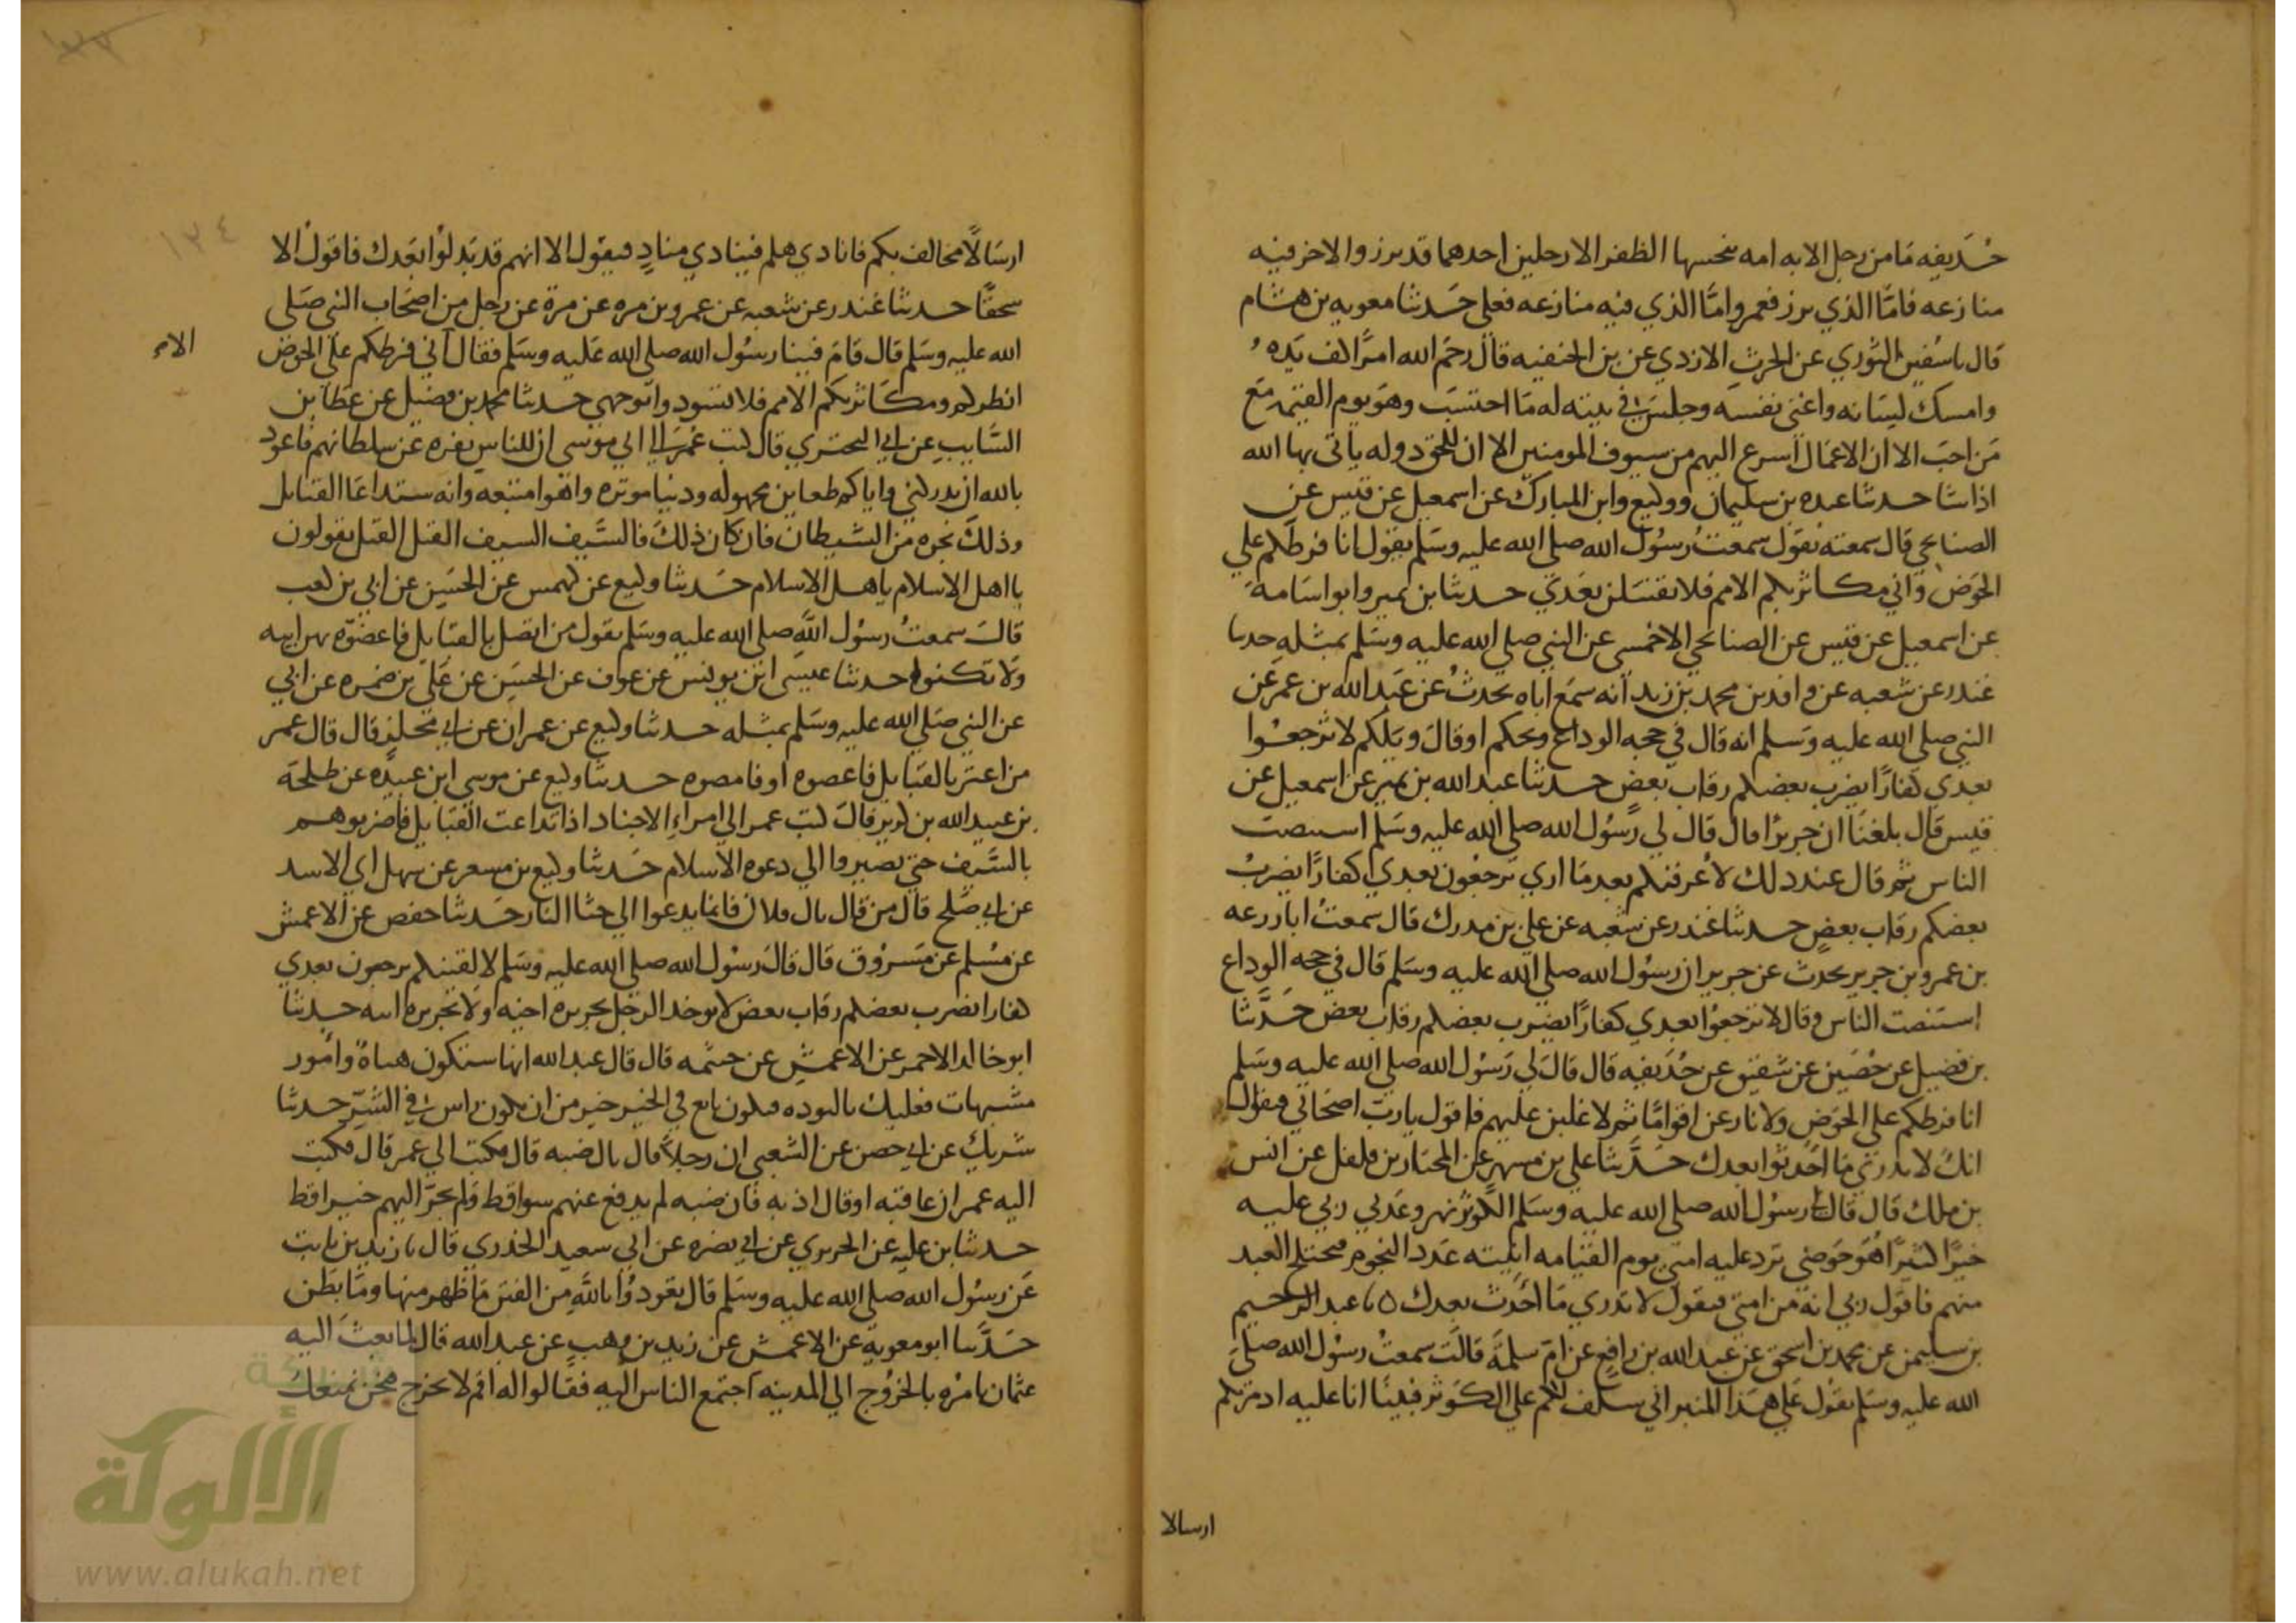 حُذيفه مَا من رجل الا به امه ينجسها الظفر الا رجلين احدهما قد برز والاخر فيه
منازعه فامَّا الذي برز فعمر وامَّا الذي فيه منازعه فعلي حَدثنا معويه بن هشام
قال نا سُفين الثوري عن الحرث الازدي عن بن الحنفيه قال رحَم الله امرًا كف يَده
وامسك لسَانه واغنى نفسَه وجلسَ في بيته له مَا احتسَب وهو يوم القيمه مَع
مَن احبَ الا ان الاعمَال اسرع اليهم من سيوف المومنين الا ان للحق دوله ياتى بها الله
اذا شا حدثنا عبده بن سليمان ووكيع وابن المبارك عن اسمعيل عن قيس عن
الصنابحي قال سمعته يقول سمعتُ رسُول الله صلى الله عليه وسَلم يقول انا فرطكم علي
الحَوض واني مكاثر بكم الامم فلا تقتتلن بعَدي حدثنا بن نمير وابو اسَامة
عن اسمعيل عن قيس عن الصنابحي الاحمسي عن النبي صلى الله عليه وسَلم بمثله حدثنا
غندر عن شعبه عن واقد بن محمد بن زيد انه سمَع اباه يحدثُ عن عَبد الله بن عمرَ عَن
النبي صلى الله عليه وسَلم انه قال في حجه الوداع ويحكم او قالَ ويَلكم لا ترجعوا
بعدي كفارًا يضرب بعضكم رقاب بَعضٍ حدثنا عبد الله بن نمير عن اسمعيل عن
قيس قال بلغنَا ان جريرًا قال قال لي رَسُول الله صلى الله عليه وسَلم استنصت
الناس ثم قال عند ذلك لا عرفنكم بعد مَا اري ترجعُون بعدي كفارًا يضربُ
بعضكم رقاب بعضٍ حدثنا غندر عن شعبه عن علي بن مدرك قال سمعتُ ابا زرعه
بن عمرو بن جرير يحدث عن جرير ان رسُول الله صلى الله عليه وسَلم قال في حجه الوداع
استنصت الناس وقال لا ترجعوا بعدي كفارًا يضرب بعضكم رقاب بعض حَدَّثنا
بن فضيل عن حُصَين عن شقيق عن حُذيفه قال قالَ لي رَسُول الله صلى الله عليه وسَلم
انا فرطكم على الحَوضِ ولانازعن اقوامًا ثم لاغلبن عليهم فاقول يا ربّ اصحَابي فيقال
انكَ لا تدري مَا احَدثوا بعدك حَدَّثنا علي بن مسهر عن المختار بن فلفل عن انس
بن ملك قال قال لي رسُول الله صلى الله عليه وسَلم الكوثر نهر وعَدني ربي عليه
خيرًا كثيرًا هُوَ حَوضي تَرد عليه امتي يوم القيَامه انيته عَدد النجوم فيختلج العبد
منهم فاقول ربي انه من امتي فيقول لا تدري مَا احدث بعدك ٥ نا عبد الرحيم
بن سليمن عن محمد بن اسحق عن عَبد الله بن رافع عن ام سلمَة قالت سمعتُ رسُول الله صلى
الله عليه وسَلم يقول عَلي هَذا المنبر اني سلف لكم علي الكَوثر فبينَا انا عليه اذ مر بكم
ارسالا
ارسَالًا مخالف بكم فانادي هلم فينادي منادٍ فيقول الا انهم قد بَدلوا بعَدك فاقولُ الا
سحقًا حدثنا غندر عن شعبه عن عمرو بن مره عن مرة عن رجل من اصحَاب النبي صَلى
الله عليه وسَلم قال قامَ فينا رسُول الله صلى الله عَليه وسَلم فقال اني فرطكم على الحَوض
الامر
انظركم ومكَاثر بكم الامم فلا تسَودوا وجهي حدثنا محمد بن فضيل عن عطَا بن
السَّايب عن ابي البحتري قال كتب عُمر الي ابي موسى ان للناس نفره عن سلطانهم فاعوذ
بالله ان تدركني واياكم ضغاين محمولَه ودنيا موثره واهوا متبعه وانه ستداعَا القبايل
وذلكَ نخوه من الشيطان فان كان ذلكَ فالسَّيف السيف القتل القتل يقولون
يا اهل الاسلام يا هل الاسلام حَدثنا وكيع عن كهمس عن الحسَين عن ابي بن كعب
قالَ سمعتُ رسُول اللَّه صلى الله عليه وسَلم يقول من اتصل بالقبايل فاعضوّه بهن ابيه
ولا تكنوه حدثنا عيسَى ابن يونس عن عوف عن الحسَن عن عَلي بن ضمره عن ابي
عن النبي صَلي الله عليه وسَلم بمثله حدثنا وكيع عن عمران عن ابي مجلز قال قال عمر
من اعتز بالقبايل فاعضوه او فامصوه حدثنا وكيع عن موسى ابن عبيدَه عن طلحَه
بن عبيد الله بن كريز قالَ كتب عمر الي امراءِ الاجناد اذا تداعت القبَايل فاضربوهم
بالسَّيف حتي يصيروا الي دعوه الاسلام حَدثنا وكيع بن مسعر عن سهل ابي الاسد
عن ابي صَلح قال من قال يال فلان فانما يدعوا الي جثا النار حَدثنا حفص عن الاعمش
عن مُسْلم عن مسَروق قال قالَ رسُول الله صلى الله عليه وسَلم لا لقينكم ترجعون بعدي
كفارا يضرب بعضكم رقاب بعض لا يوخذ الرجل بجريره اخيه ولا بجريره ابيه حدثنا
ابو خالد الاحمر عن الاعمش عن خيثمه قال قال عبد الله انها ستكون هناةٌ وامور
مشبهات فعليك بالتوده فتكون تابع في الخير خير من ان تكون راس في الشرّ حدثنا
شريك عن ابي حصن عن الشعبي ان رجلًا قال يال ضبه قال فكتب الي عمر قال فكتب
اليه عمر ان عاقبه او قال ادبه فان ضبه لم يدفع عنهم سوا قط ولم يجرّ اليهم خيرا قط
حدثنا بن عليه عن الجريري عن ابي نضره عن ابي سعيد الخذري قال نا زيد بن ثابت
عَن رسُول الله صلى الله عليه وسَلم قال تعوذوُا باللَّه من الفتن مَا ظهر منها ومَا بطَن
حَدَّثنا ابو معوية عن الاعمش عن زيد بن وهب عن عبد الله قال لما بعثَ اليه
عثمان يامُره بالخرُوج الي المدينه اجتمع الناس اليه فقالوا له اقم لا تخرج فنحن نمنعك
١٣٤
الألوكة
www.alukah.net